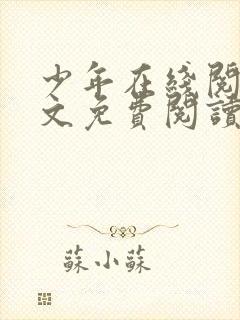 少年在綫閱
文免費閱讀
蘇小蘇